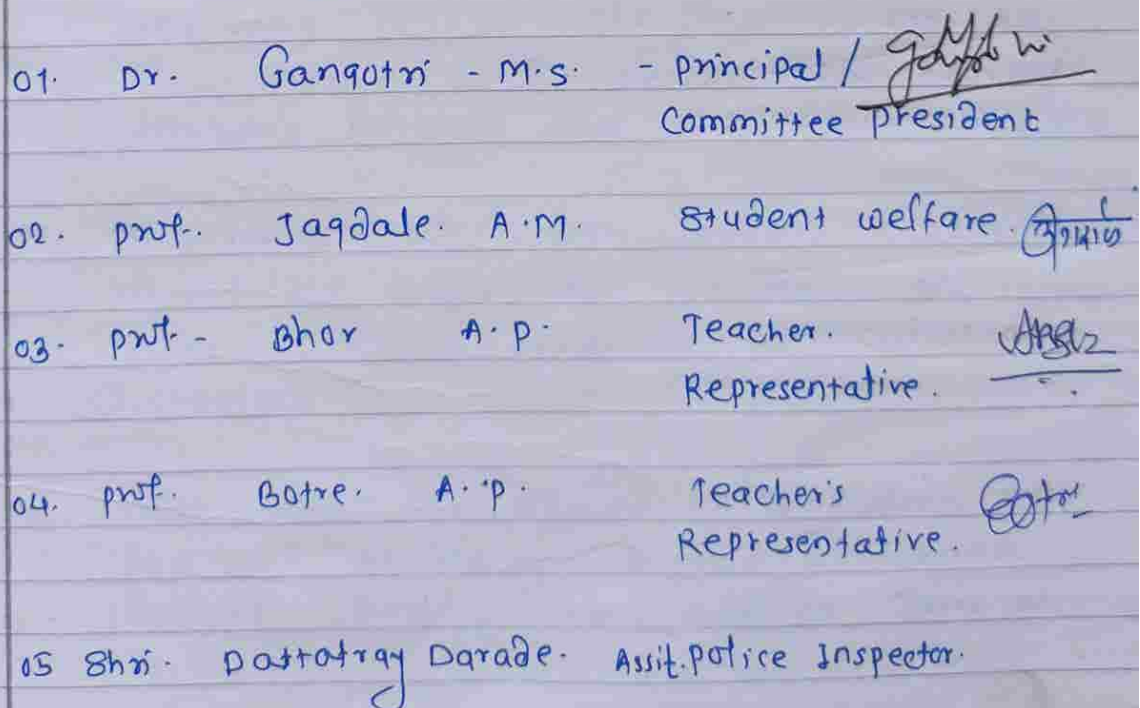 01. Dr. Gangotri - M.S. - principal /
Committee president
02. prof. Jagdale. A.M. student welfare.
03. prof - Bhor A.P. Teacher.
Representative.
04. prof. Botre. A.P. Teacher's
Representative.
05 Shri. Dattatray Darade. Assit. police Inspector.